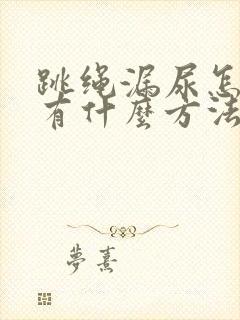 跳绳漏尿怎
有什麼方法
夢熹